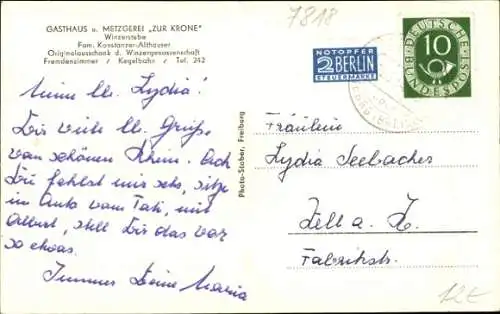 GASTHAUS u. METZGEREI „ZUR KRONE"
Winzerstube
Fam. Konstanzer-Althauser
Originalausschank d. Winzergenossenschaft
Fremdenzimmer / Kegelbahn / Tel. 242
Meine lb. Lydia!
Dir viele lb. Grüße
vom schönen Rhein. Ach
Du fehlst mir sehr, sitze
im Auto vom Tati, mit
Albert, stell Dir das vor
so etwas.
Immer Deine Maria
Photo-Stober, Freiburg
7818
NOTOPFER
2 BERLIN
STEUERMARKE
DEUTSCHE
BUNDESPOST
10
Fräulein
Lydia Seebacher
Zell a. H.
Fabrikstr.